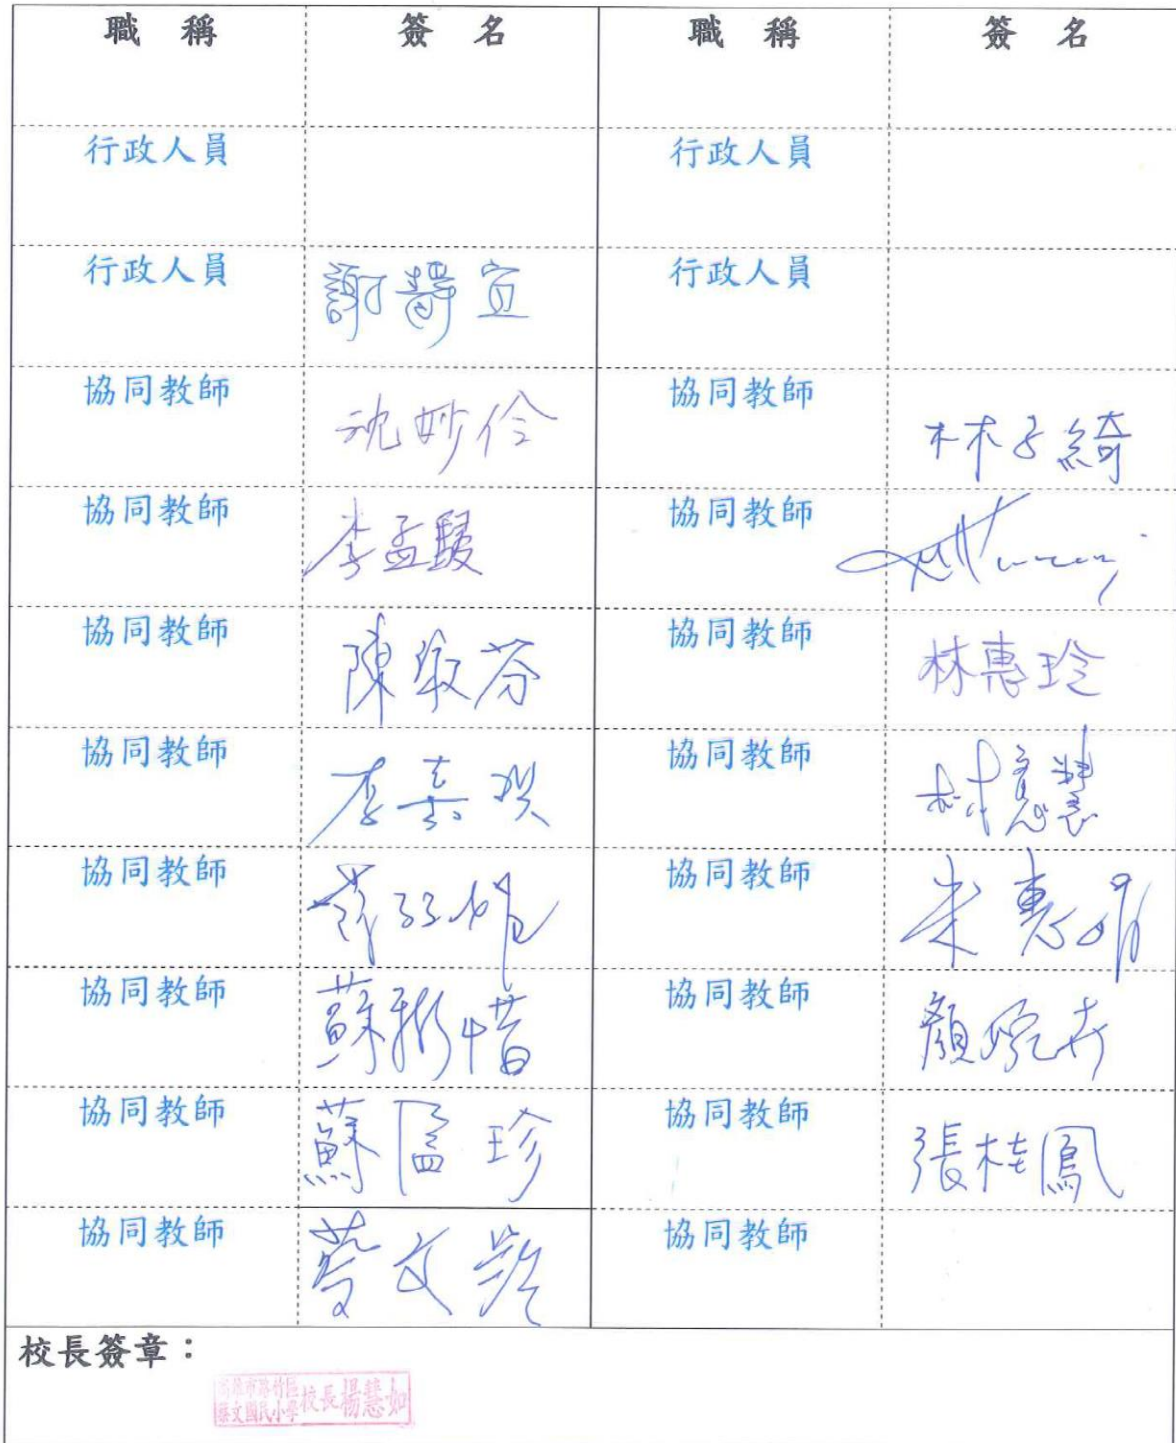 職 稱 簽 名 職 稱 簽 名
行政人員 行政人員
行政人員 謝靜宜 行政人員
協同教師 沈妙伶 協同教師 林子綺
協同教師 李孟 協同教師
協同教師 陳淑芬 協同教師 林惠玲
協同教師 李嘉 協同教師 林憶慧
協同教師 協同教師 朱惠
協同教師 蘇 惜 協同教師 顏婉卉
協同教師 蘇 珍 協同教師 張桂鳳
協同教師 蔡文 協同教師
校長簽章：
高雄市路竹區
蔡文國民小學校長楊慧如